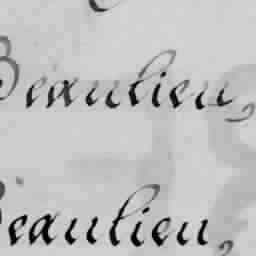 Beaulieu,
Beaulieu,